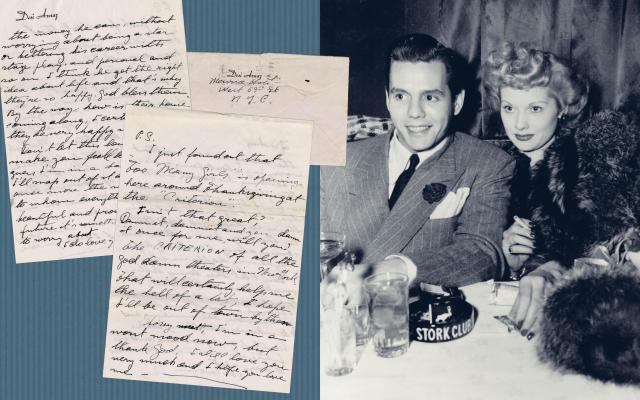 Desi Arnaz
the money he earns, without
worrying about being a star
or bettering his career with
stage plays and personal and
so on. I think he got the right
idea about life and that is why
they're so happy. God bless them.
By the way how is their home
coming along, I
they be very happy
Don't let this
make you feel
I'm in a
I'll snap out of it
once more the
to whom
beautiful and
future it
to worry about
I do love
Desi Arnaz
West 69th St
N.Y.C.
P.S.
I just found out that
Too Many Girls is opening
here around Thanksgiving at
the Criterion.
Isn't that great?
Damn it, damn it and you damn
it once for me, will you?
The CRITERION of all the
god damn theaters in New York
that will certainly help me
the hell of a lot, I hope
I'll be out of town by then
sorry I'm in a
worst mood now, but
thank God, I still love you
very much and I hope you love
me.
STORK CLUB